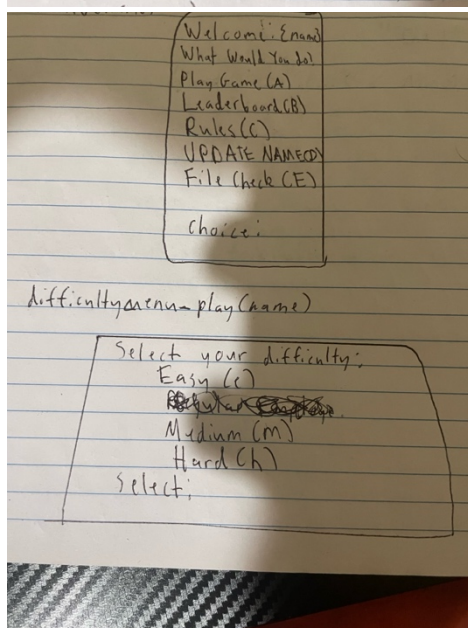 Welcome: {name}
What Would You do?
Play Game (A)
Leaderboard (B)
Rules (C)
UPDATE NAME (D)
File Check (E)
Choice:
difficultymenu_play(name)
Select your difficulty:
Easy (e)
Medium (m)
Hard (h)
Select: